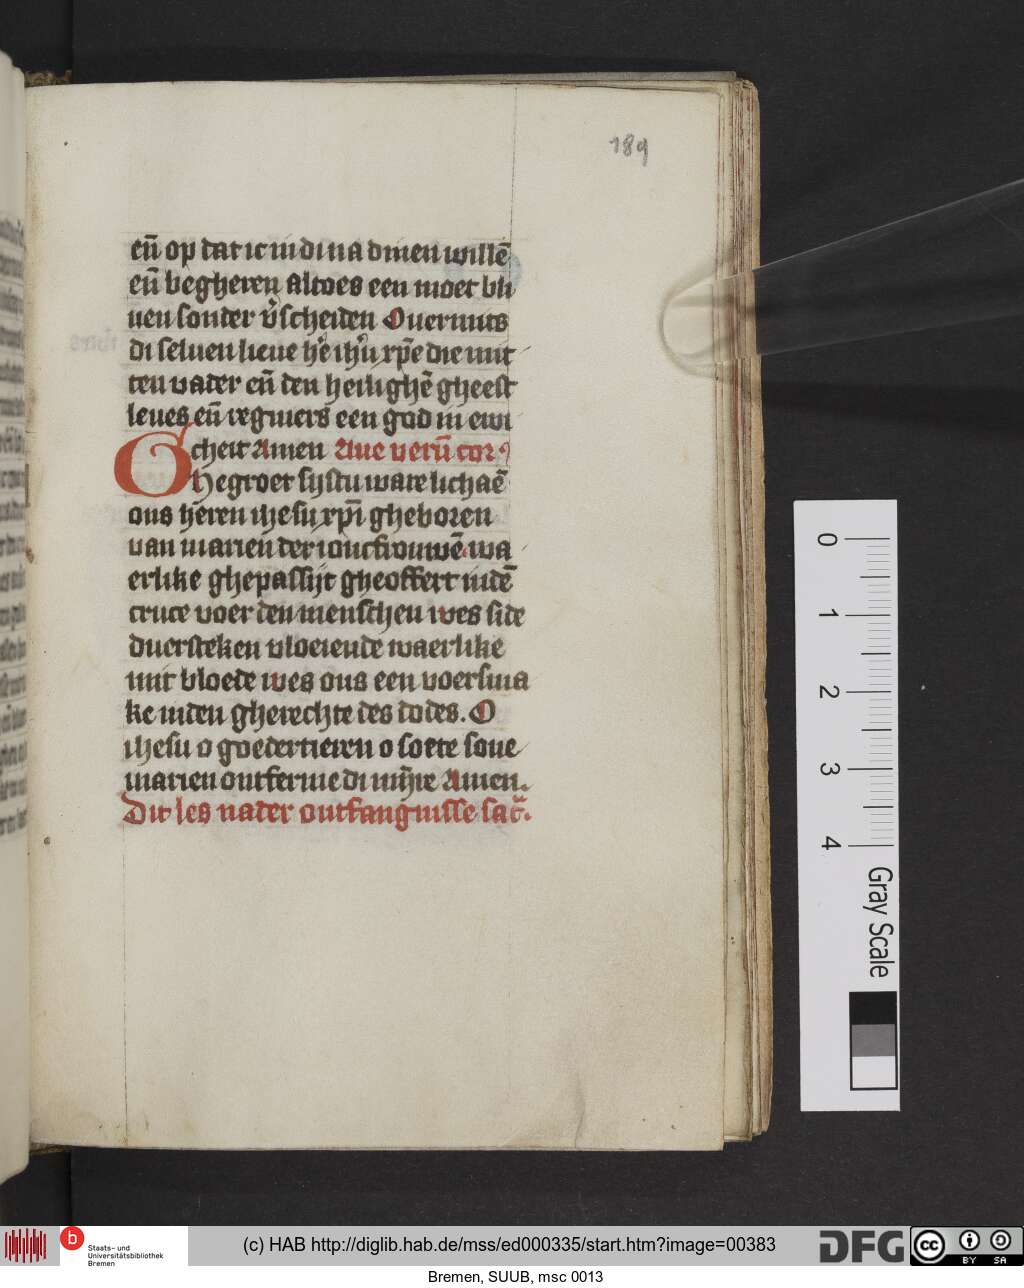 189
en̄ op dat ic in di na dinen willē
en̄ begheren altoes een moet bli
uen sonder v̄scheiden Ouermits
di seluen lieue he͛ ihū xp̄e die mit
ten vader en̄ den heilighē gheest
leues en̄ regniers een god in ewi
cheit Amen Aue verū corꝰ
Ghegroet sijstu ware lichaē
ons heren ihesu xp̄i gheboren
van marien der ioncfrouwē wa
erlike ghepassijt gheoffert indē
cruce voer den menschen wes side
duersteken vloeiende waerlike
mit bloede wes ons een voersma
ke inden gherechte des dodes. O
ihesu o goedertieren o soete sone
marien ontferme di mijre Amen.
Dit les nader ontfangnisse sac͛.
0
1
2
3
4
Gray Scale
b
Staats- und
Universitätsbibliothek
Bremen
(c) HAB http://diglib.hab.de/mss/ed000335/start.htm?image=00383
DFG
cc
BY SA
Bremen, SUUB, msc 0013